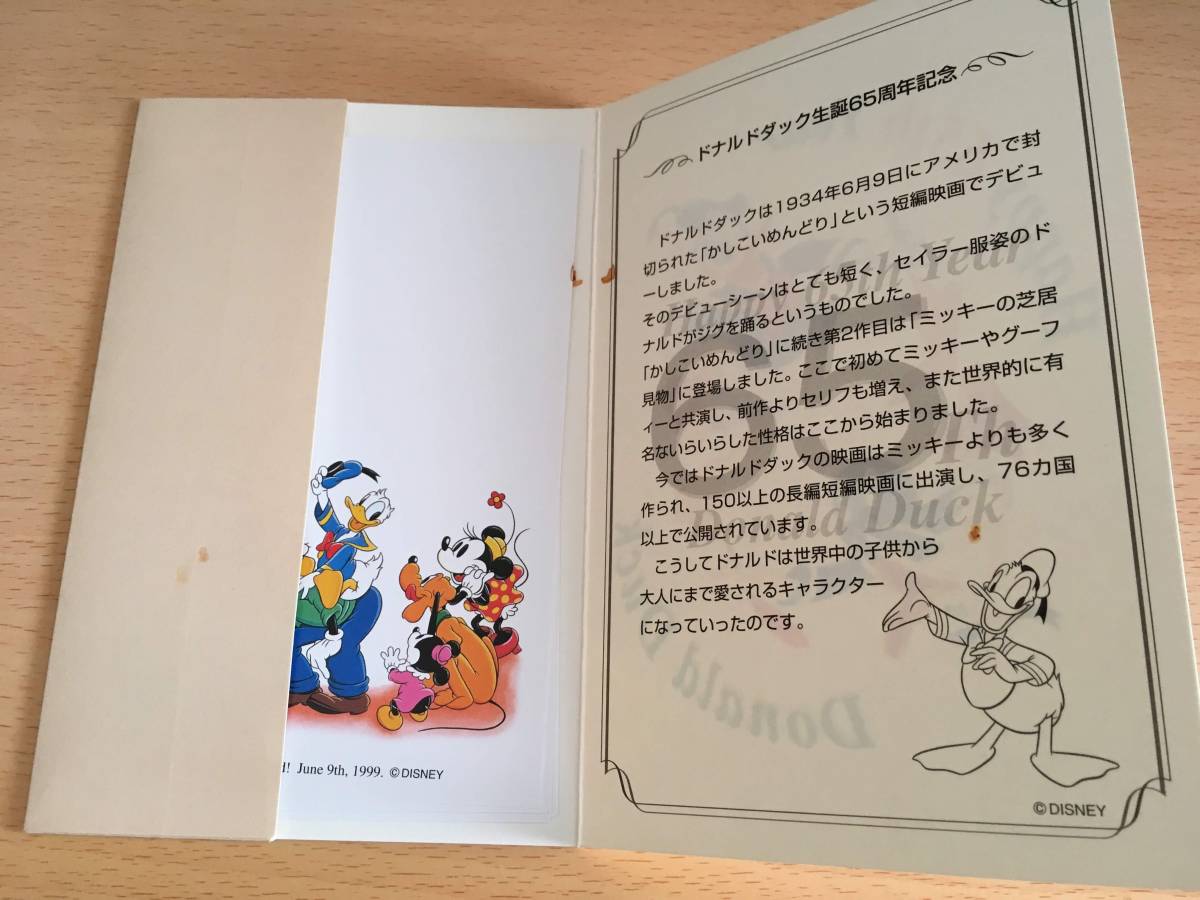 H! June 9th, 1999. ©DISNEY
ドナルドダック生誕65周年記念
ドナルドダックは1934年6月9日にアメリカで封
切られた「かしこいめんどり」という短編映画でデビュ
ーしました。
そのデビューシーンはとても短く、セイラー服姿のド
ナルドがジグを踊るというものでした。
「かしこいめんどり」に続き第2作目は「ミッキーの芝居
見物」に登場しました。ここで初めてミッキーやグーフ
ィーと共演し、前作よりセリフも増え、また世界的に有
名ないらいらした性格はここから始まりました。
今ではドナルドダックの映画はミッキーよりも多く
作られ、150以上の長編短編映画に出演し、76カ国
以上で公開されています。
こうしてドナルドは世界中の子供から
大人にまで愛されるキャラクター
になっていったのです。
Happy 65th Year
65
Th
Donald Duck
Donald
©DISNEY